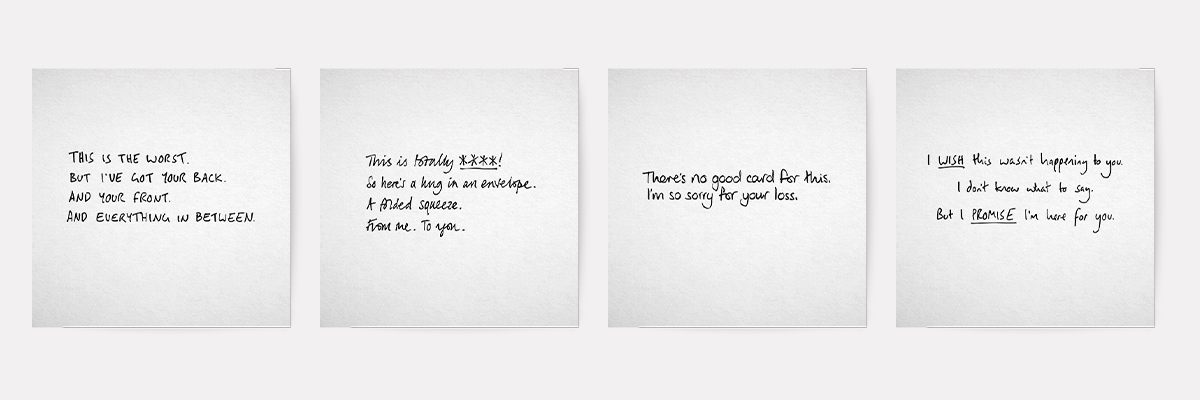 THIS IS THE WORST.
BUT I'VE GOT YOUR BACK.
AND YOUR FRONT.
AND EVERYTHING IN BETWEEN.
This is totally ****!
So here's a hug in an envelope.
A folded squeeze.
From me. To you.
There's no good card for this.
I'm so sorry for your loss.
I WISH this wasn't happening to you.
I don't know what to say.
But I PROMISE I'm here for you.